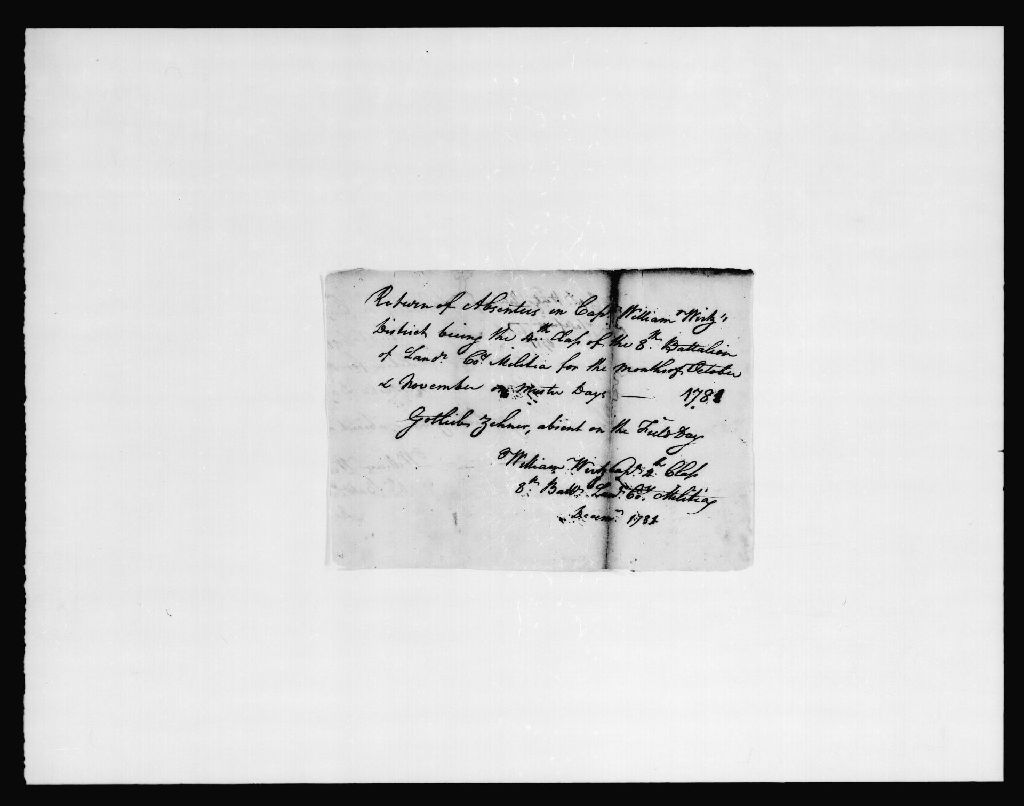 Return of Absentees in Capt William Wirtz's
District being the 2th Class of the 8th Battalion
of Lanr. Coy Militia for the months of October
& November on Muster Days — 1781
Gotlieb Zehner, absent on the Field Day
William Wirtz Capt. 2th Class
8th Batt. Lanr. Coy. Militia
Decemr. 1781